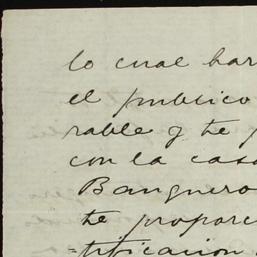 lo cual har
el publico
rable y te p
con la casa
Banquero
te proporc
=tificacion